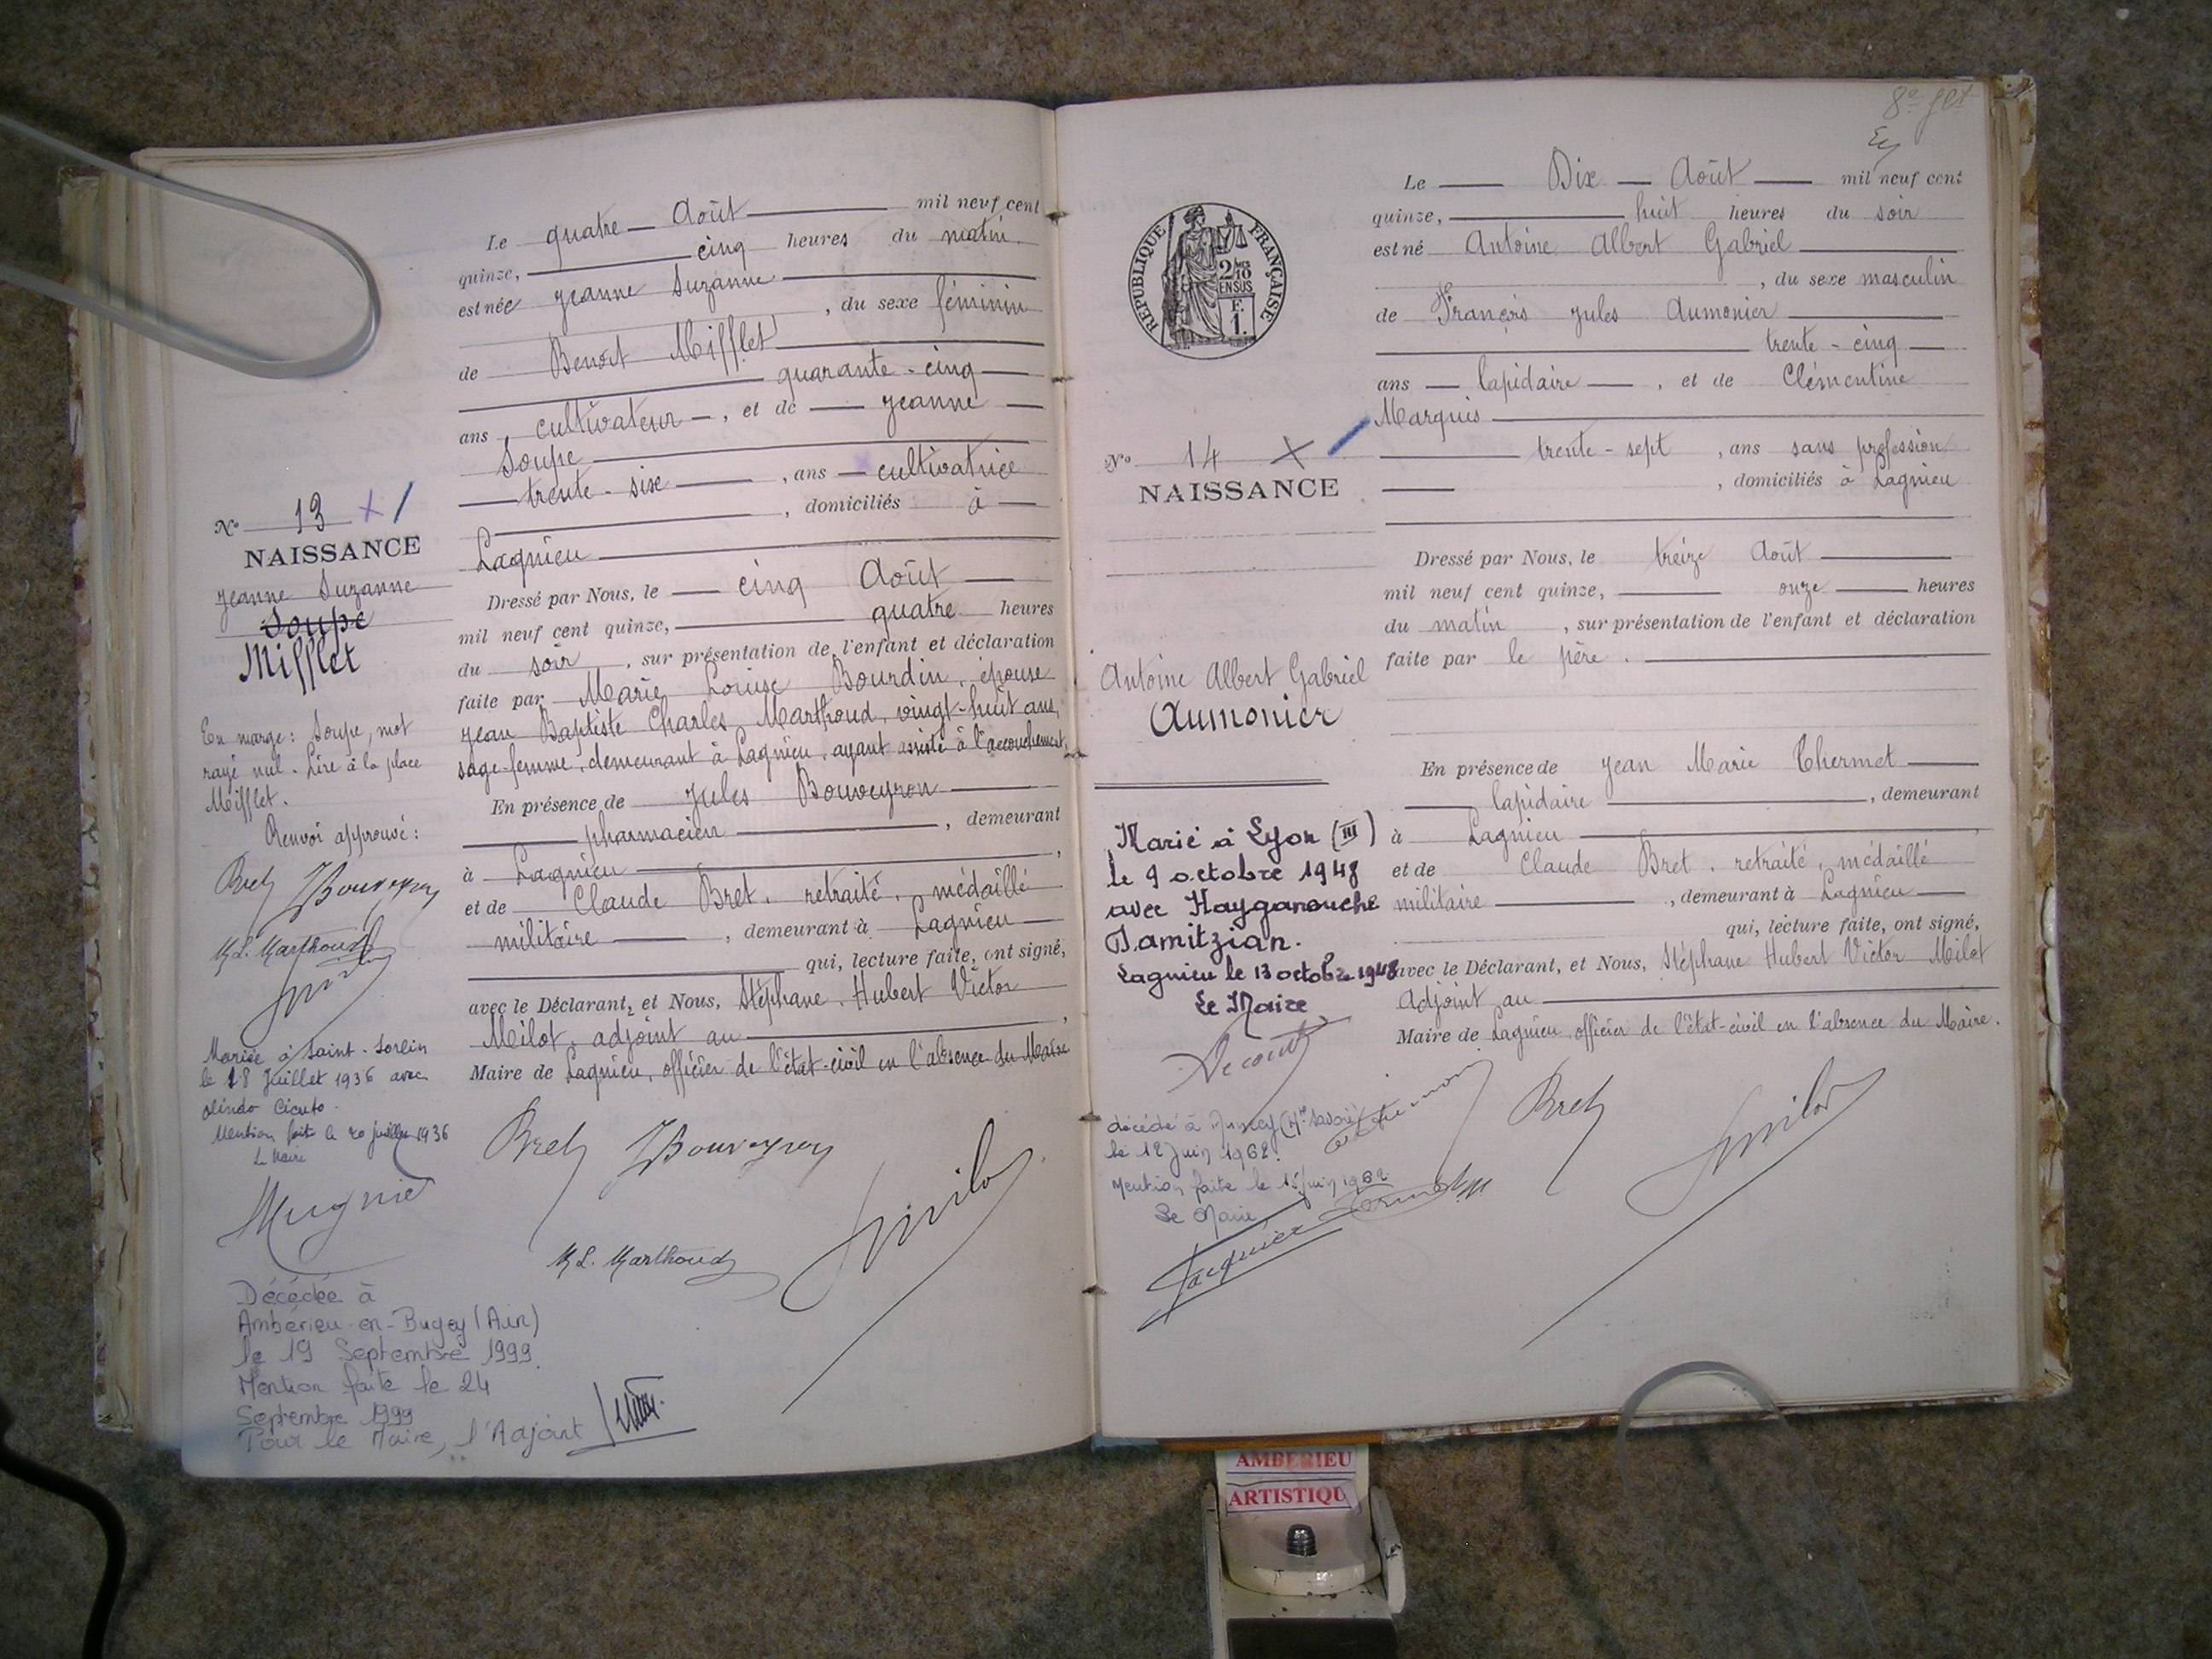 Le quatre Août mil neuf cent
quinze, cinq heures du matin
est née Jeanne Suzanne
, du sexe féminin
de Benoît Mifflet
quarante-cinq
ans cultivateur, et de Jeanne
Soupe
trente-six, ans cultivatrice
, domiciliés à
Lagnieu
Dressé par Nous, le cinq Août
mil neuf cent quinze, quatre heures
du soir, sur présentation de l'enfant et déclaration
faite par Marie Louise Bourdin, épouse
Jean Baptiste Charles Marthoud, vingt-huit ans,
sage-femme, demeurant à Lagnieu, ayant assisté à l'accouchement,
En présence de Jules Bouveyron
pharmacien, demeurant
à Lagnieu,
et de Claude Bret, retraité, médaillé
militaire, demeurant à Lagnieu
qui, lecture faite, ont signé,
avec le Déclarant, et Nous, Stéphane, Hubert Victor
Milot, adjoint au,
Maire de Lagnieu, officier de l'état-civil en l'absence du Maire
Bret JBouveyron
M L. Marthoud Smilot
No 13
NAISSANCE
Jeanne Suzanne
Soupe
Mifflet
En marge: Soupe, mot
rayé nul. Lire à la place
Mifflet.
Renvoi approuvé:
Bret JBouveyron
M L. Marthoud
Mariée à Saint-Sorlin
le 18 Juillet 1936 avec
Olindo Cicuto.
Mention faite le 20 juillet 1936
Le Maire
Mugnier
Décédée à
Ambérieu-en-Bugey (Ain)
le 19 Septembre 1999.
Mention faite le 24
Septembre 1999
Pour le Maire, l'Adjoint
8e
Le Dix Août mil neuf cent
quinze, huit heures du soir
est né Antoine Albert Gabriel
, du sexe masculin
de François Jules Aumonier
trente-cinq
ans lapidaire, et de Clémentine
Marquis
trente-sept, ans sans profession
, domiciliés à Lagnieu
Dressé par Nous, le treize Août
mil neuf cent quinze, onze heures
du matin, sur présentation de l'enfant et déclaration
faite par le père.
En présence de Jean Marie Thermet
lapidaire, demeurant
à Lagnieu,
et de Claude Bret, retraité, médaillé
militaire, demeurant à Lagnieu
qui, lecture faite, ont signé,
avec le Déclarant, et Nous, Stéphane Hubert Victor Milot
Adjoint au
Maire de Lagnieu, officier de l'état-civil en l'absence du Maire.
Bret Smilot
REPUBLIQUE FRANÇAISE
2/10 EN SUS
F.
1.
No 14
NAISSANCE
Antoine Albert Gabriel
Aumonier
Marié à Lyon (III)
le 9 octobre 1948
avec Hayganouche
Damitzian.
Lagnieu le 13 octobre 1948
Le Maire
décédé à Annecy (Hte Savoie)
le 12 Juin 1962.
Mention faite le 15 Juin 1962
Le Maire,
AMBERIEU
ARTISTIQU